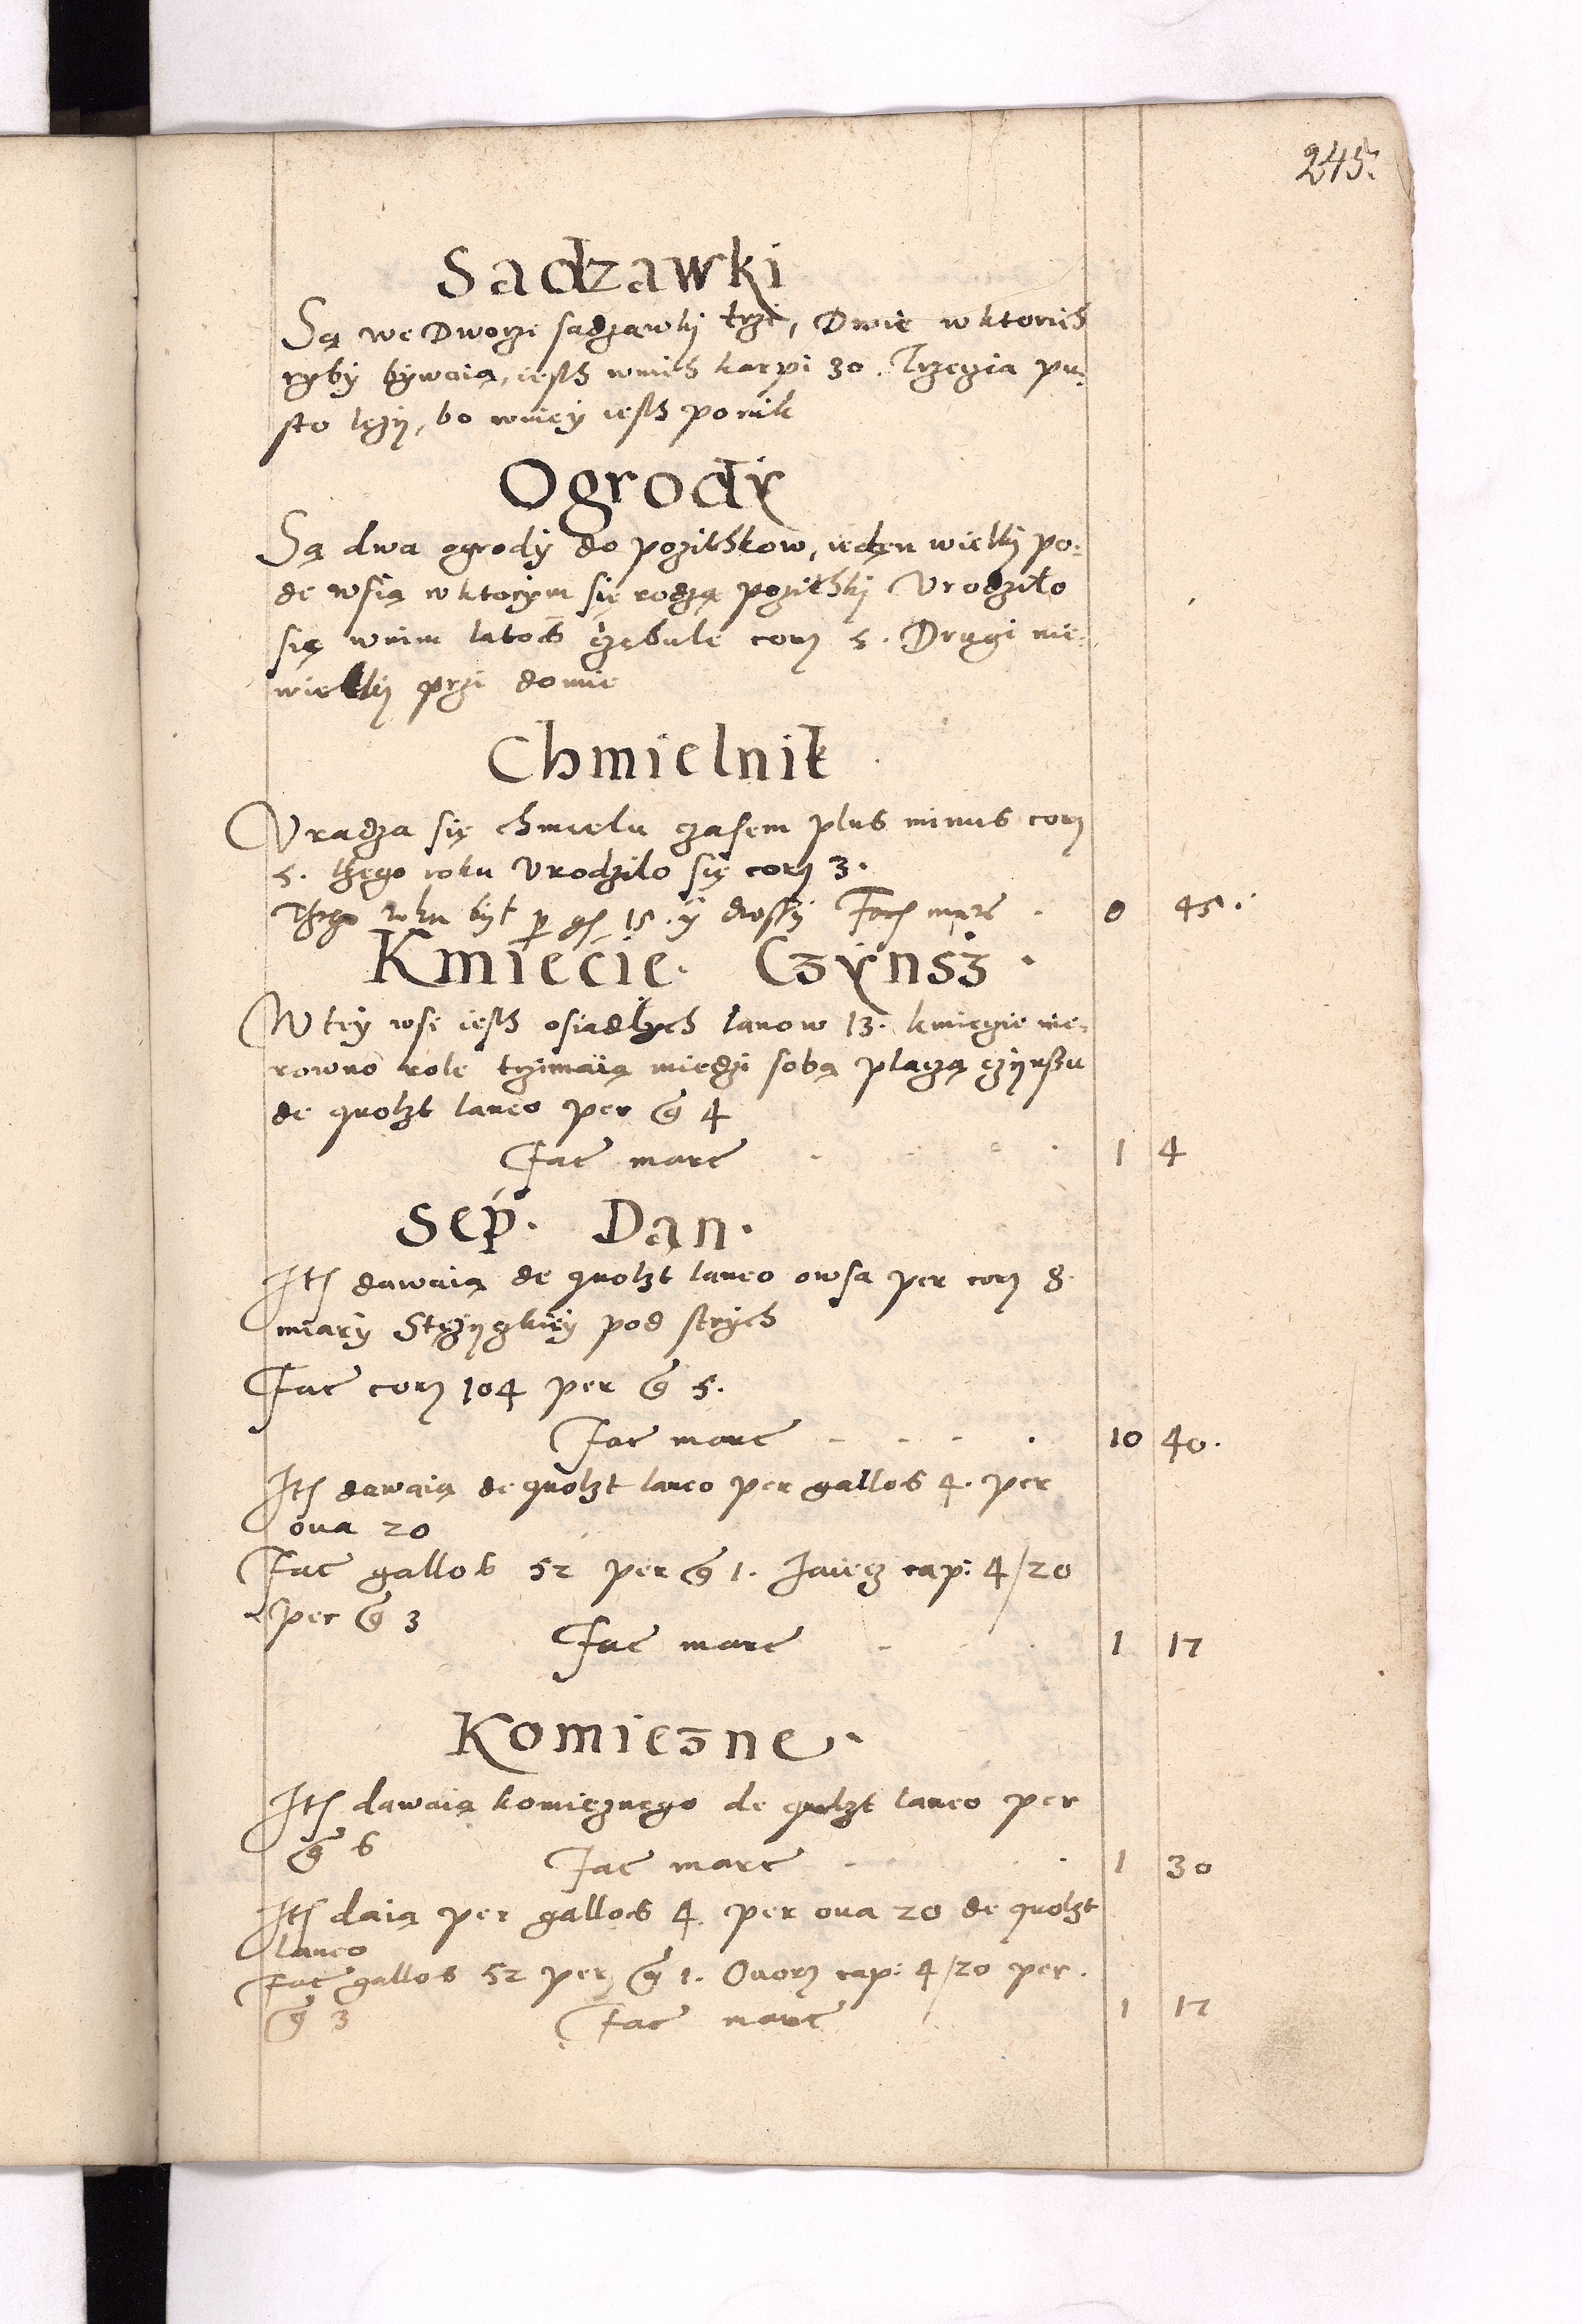 245.
Sadzawki
Są we Dworze sadzawki trzi, Dwie w ktorich
ryby bywaią, iesth wnich karpi 30. Trzecia pu-
sto lezy, bo wniey iesth ponik
Ogrody
Są dwa ogrody do pozithkow, ieden wielki po-
de wsią w ktorym się rodzą pozithki Vrodziło
się wnim latoś czebule corz 5. Drugi nie-
wielki przi domie
Chmielnik
Vradza się chmielu czasem plus minus corz
5. tego roku Vrodzilo się corz 3.
roku był p gs 15. y Fac marc 0 45.
Kmiecie. Czynsz.
W tey wsi iesth osiadłych lanow 13. kmiecie nie-
rowno role trzimaią miedzi sobą placzą czynszu
de quolzt laneo per g 4
Fac marc 1 4
Sep. Dan.
Ith dawaią de quolzt laneo owsa per corz 8.
miary Stezyczkiey pod strych
Fac corz 104 per g 5.
Fac marc 10 40.
Ith dawaią de quolzt laneo per gallos 4. per
oua 20
Fac gallos 52 per g 1. Jaiecz cap: 4/20
per g 3
Fac marc 1 17
Komiezne.
Ith dawaią komieznego de quolzt laneo per
g 6
Fac marc 1 30
Ith daią per gallos 4 per oua 20 de quolzt
laneo
Fac gallos 52 per g 1. Ouorz cap: 4/20 per.
g 3 Fac marc 1 17